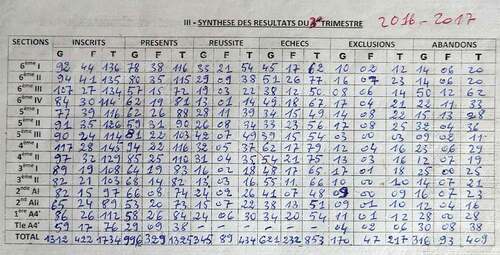 III - SYNTHESE DES RESULTATS DU 3e TRIMESTRE 2016-2017
SECTIONS INSCRITS PRESENTS REUSSITE ECHECS EXCLUSIONS ABANDONS
G F T G F T G F T G F T G F T G F T
6ème I 92 44 136 78 38 116 33 21 54 45 17 62 10 02 12 14 06 20
6ème II 94 41 135 80 35 115 29 09 38 51 26 77 16 07 23 14 06 20
6ème III 107 27 134 57 15 72 19 03 22 38 12 50 08 06 14 50 12 62
6ème IV 84 30 114 62 19 81 13 01 14 49 18 67 17 04 21 22 11 33
5ème I 77 39 116 62 26 88 28 11 39 34 15 49 14 08 22 15 13 28
5ème II 91 35 126 59 31 90 26 08 34 33 23 56 17 08 25 32 04 36
5ème III 90 24 114 81 22 103 42 07 49 39 15 54 03 00 03 09 02 11
4ème I 117 28 145 94 22 116 32 05 37 62 17 79 12 04 16 23 06 29
4ème II 97 32 129 85 25 110 31 04 35 54 21 75 13 03 16 12 07 19
3ème I 89 19 108 64 19 83 16 02 18 48 17 65 17 01 18 25 00 25
3ème II 82 21 103 68 14 82 13 03 16 55 11 66 10 00 10 14 07 21
2nd AI 82 15 97 66 08 74 24 02 26 42 06 48 09 00 09 16 07 23
2nd Ali 65 24 89 53 20 73 15 07 22 38 13 51 09 01 10 12 04 16
1ère A4' 86 26 112 58 26 84 24 06 30 34 20 54 11 01 12 28 00 28
Tle A4' 59 17 76 29 09 38 04 02 06 30 08 38
TOTAL 1312 422 1734 996 329 1325 345 89 434 621 232 853 170 47 217 316 93 409